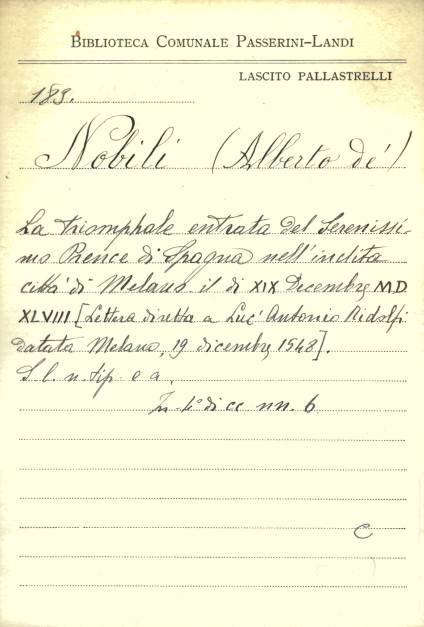 BIBLIOTECA COMUNALE PASSERINI-LANDI
LASCITO PALLASTRELLI
189.
Nobili (Alberto de')
La triomphale entrata del Serenissi-
mo Prence di Spagna nell'inclita
città di Melano il dì XIX Decembre MD
XLVIII [Lettera diretta a Luc'Antonio Ridolfi
datata Melano, 19 dicembre 1548].
S. l. n. tip. e a.
In-4° di cc nn. 6
C